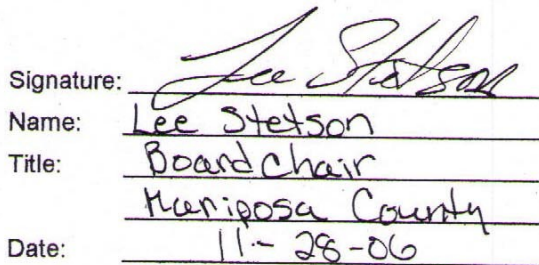 Signature: Lee Stetson
Name: Lee Stetson
Title: Board Chair
Mariposa County
Date: 11-28-06